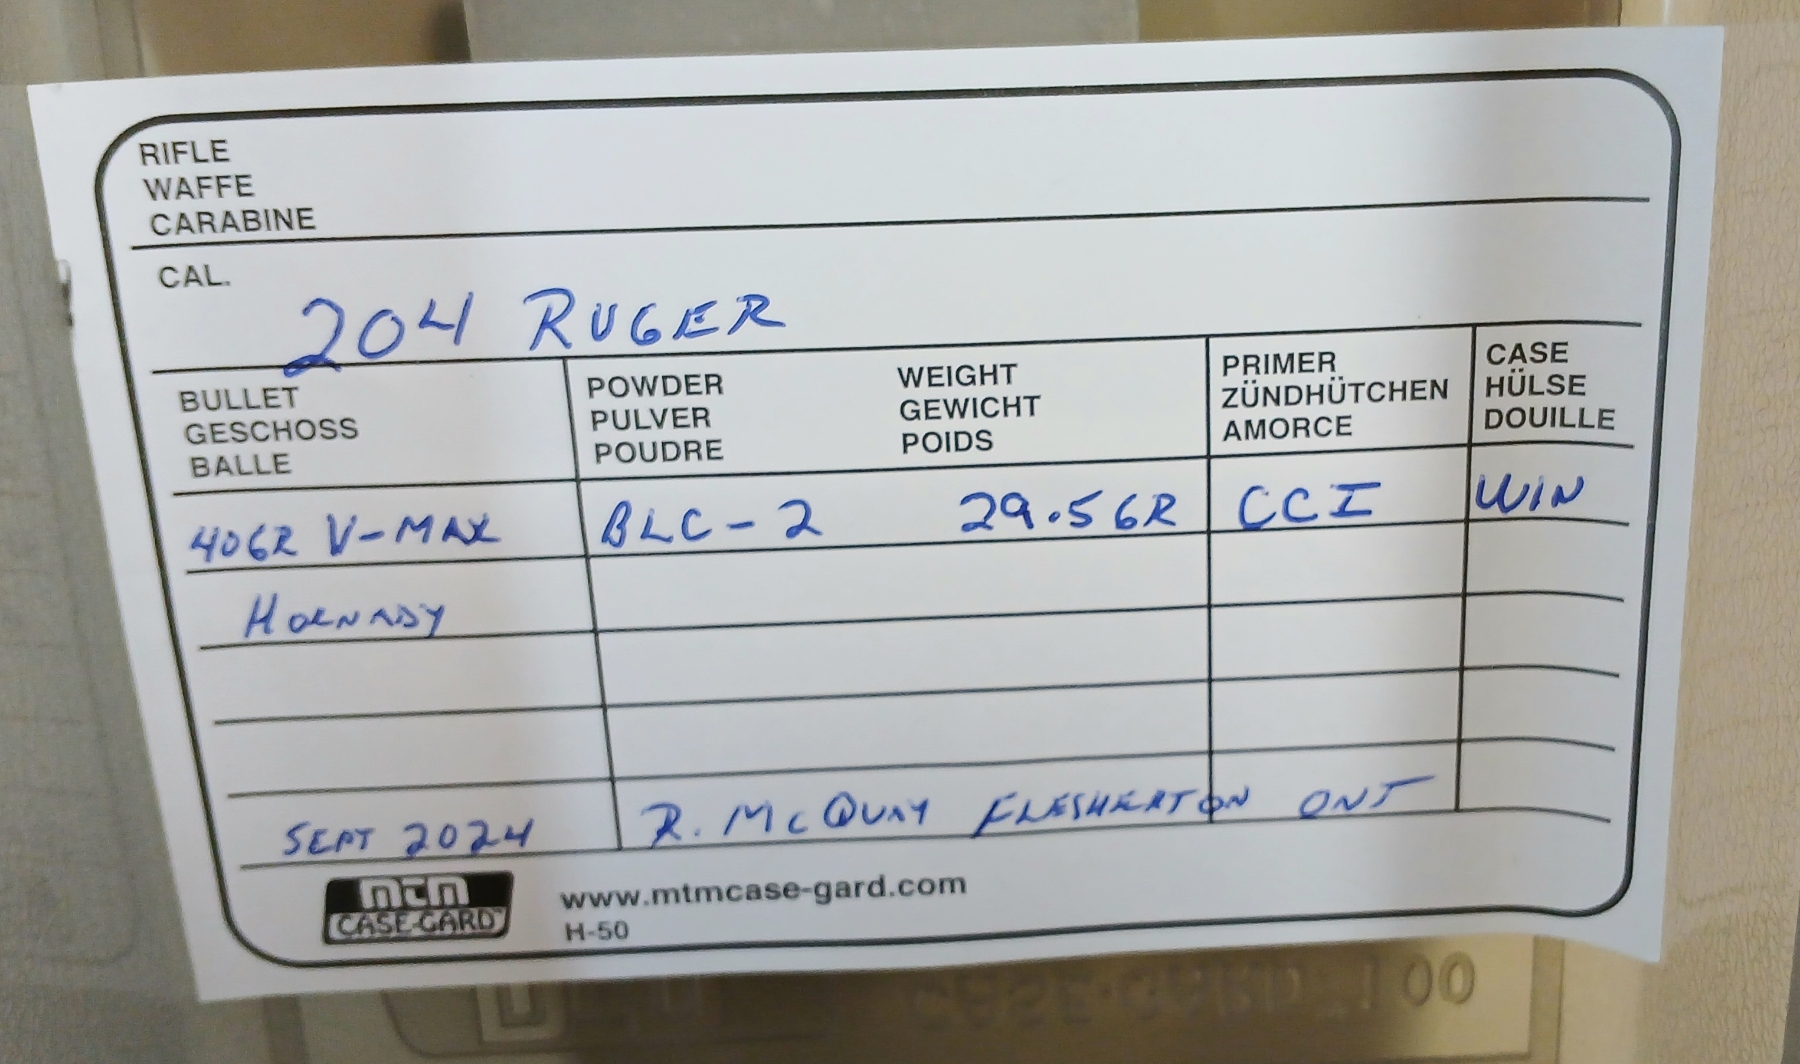 RIFLE
WAFFE
CARABINE
CAL.
204 RUGER
BULLET
GESCHOSS
BALLE
POWDER
PULVER
POUDRE
WEIGHT
GEWICHT
POIDS
PRIMER
ZÜNDHÜTCHEN
AMORCE
CASE
HÜLSE
DOUILLE
40GR V-MAX BLC-2 29.5GR CCI WIN
HORNADY
SEPT 2024 R. McQUAY FLESHERTON ONT
MTM
CASE-GARD™
www.mtmcase-gard.com
H-50
CASE-GARD 100